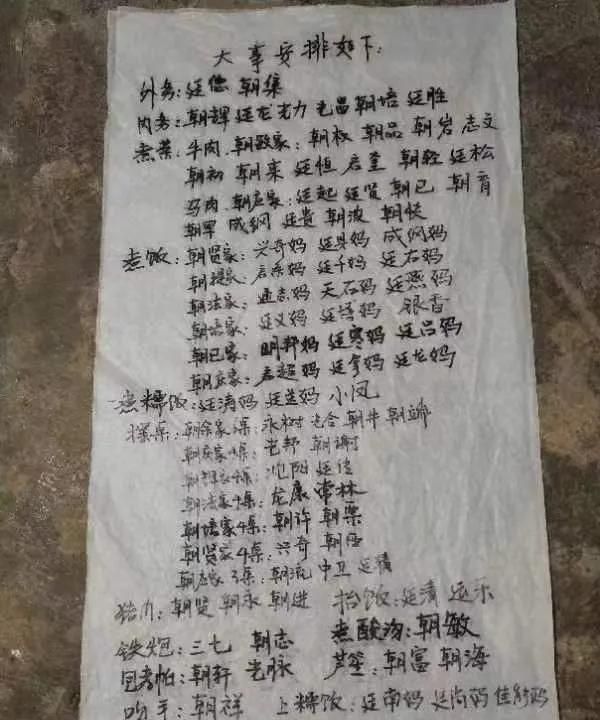 大事安排如下:
外务:廷德 朝集
内务:朝辉 廷龙 光力 光昌 朝培 廷胜
煮菜:牛肉 朝致家:朝权 朝品 朝岩 志文
朝初 朝来 廷恒 启堂 朝乾 廷松
马肉 朝启家:廷起 廷贤 朝已 朝育
朝军 成纲 廷贵 朝波 朝快
煮饭:朝贤家:兴奇妈 廷县妈 成纲妈
朝提家:启亲妈 廷千妈 廷石妈
朝法家:进志妈 天石妈 廷燕妈
朝培家:廷义妈 廷培妈 银香
朝已家:明邦妈 廷寒妈 廷吕妈
朝启家:启超妈 廷拿妈 廷龙妈
煮糯饭:廷涛妈 廷益妈 小凤
摆桌:朝余家 桌:永树 光合 朝牛 朝
朝 家 桌:光邦 朝谢
朝 家4桌:沈阳 廷信
朝法家4桌:龙康 常林
朝培家4桌:朝许 朝票
朝贤家4桌:兴奇 朝
朝启家3桌:朝流 中卫 廷精
猪肉:朝贤 朝永 朝进 抬饭:廷清 远乐
铁炮:三七 朝志 煮酸汤:朝敏
包孝帕:朝轩 光脉 芦笙:朝富 朝海
吹手:朝祥 上糯饭:廷南妈 廷尚妈 佳 妈